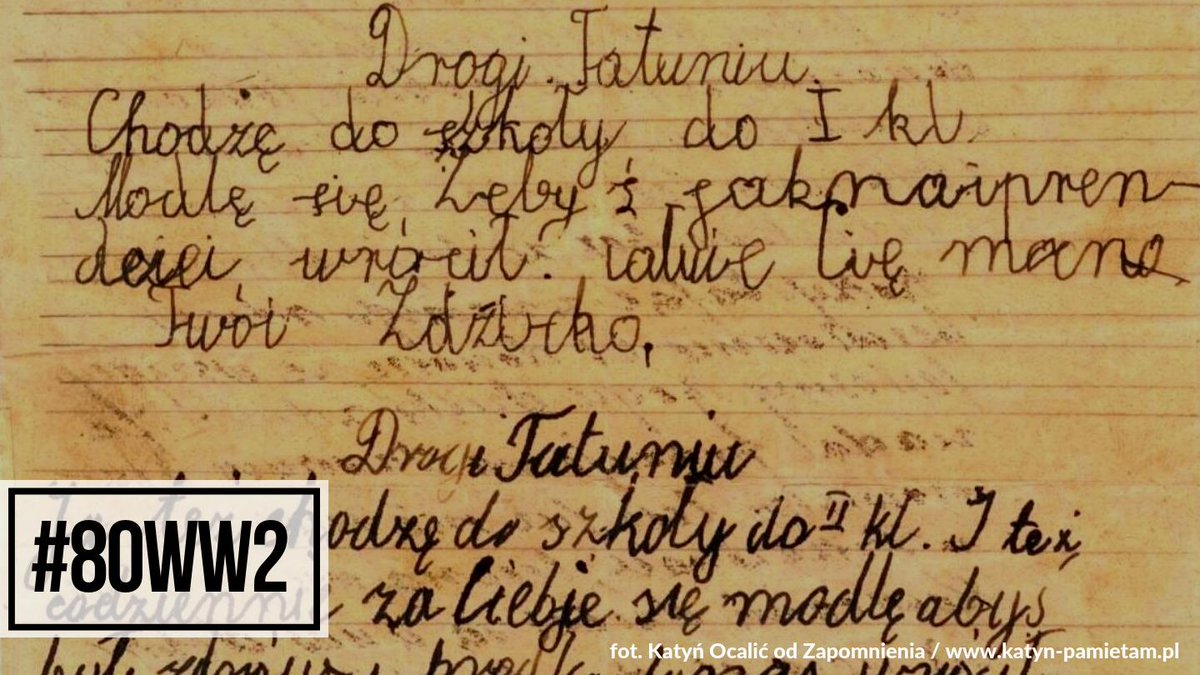 Drogi Tatuniu.
Chodzę do szkoły, do I kl.
Modlę się, żebyś jaknaipren-
dziei, wrócił. całuię Cię mocno
Twói Zdziśko,
Drogi Tatuniu
Ja też chodzę do szkoły do II kl. I też
codziennie za Ciebie się modlę abyś
był zdrowy i
#80WW2
fot. Katyń Ocalić od Zapomnienia / www.katyn-pamietam.pl